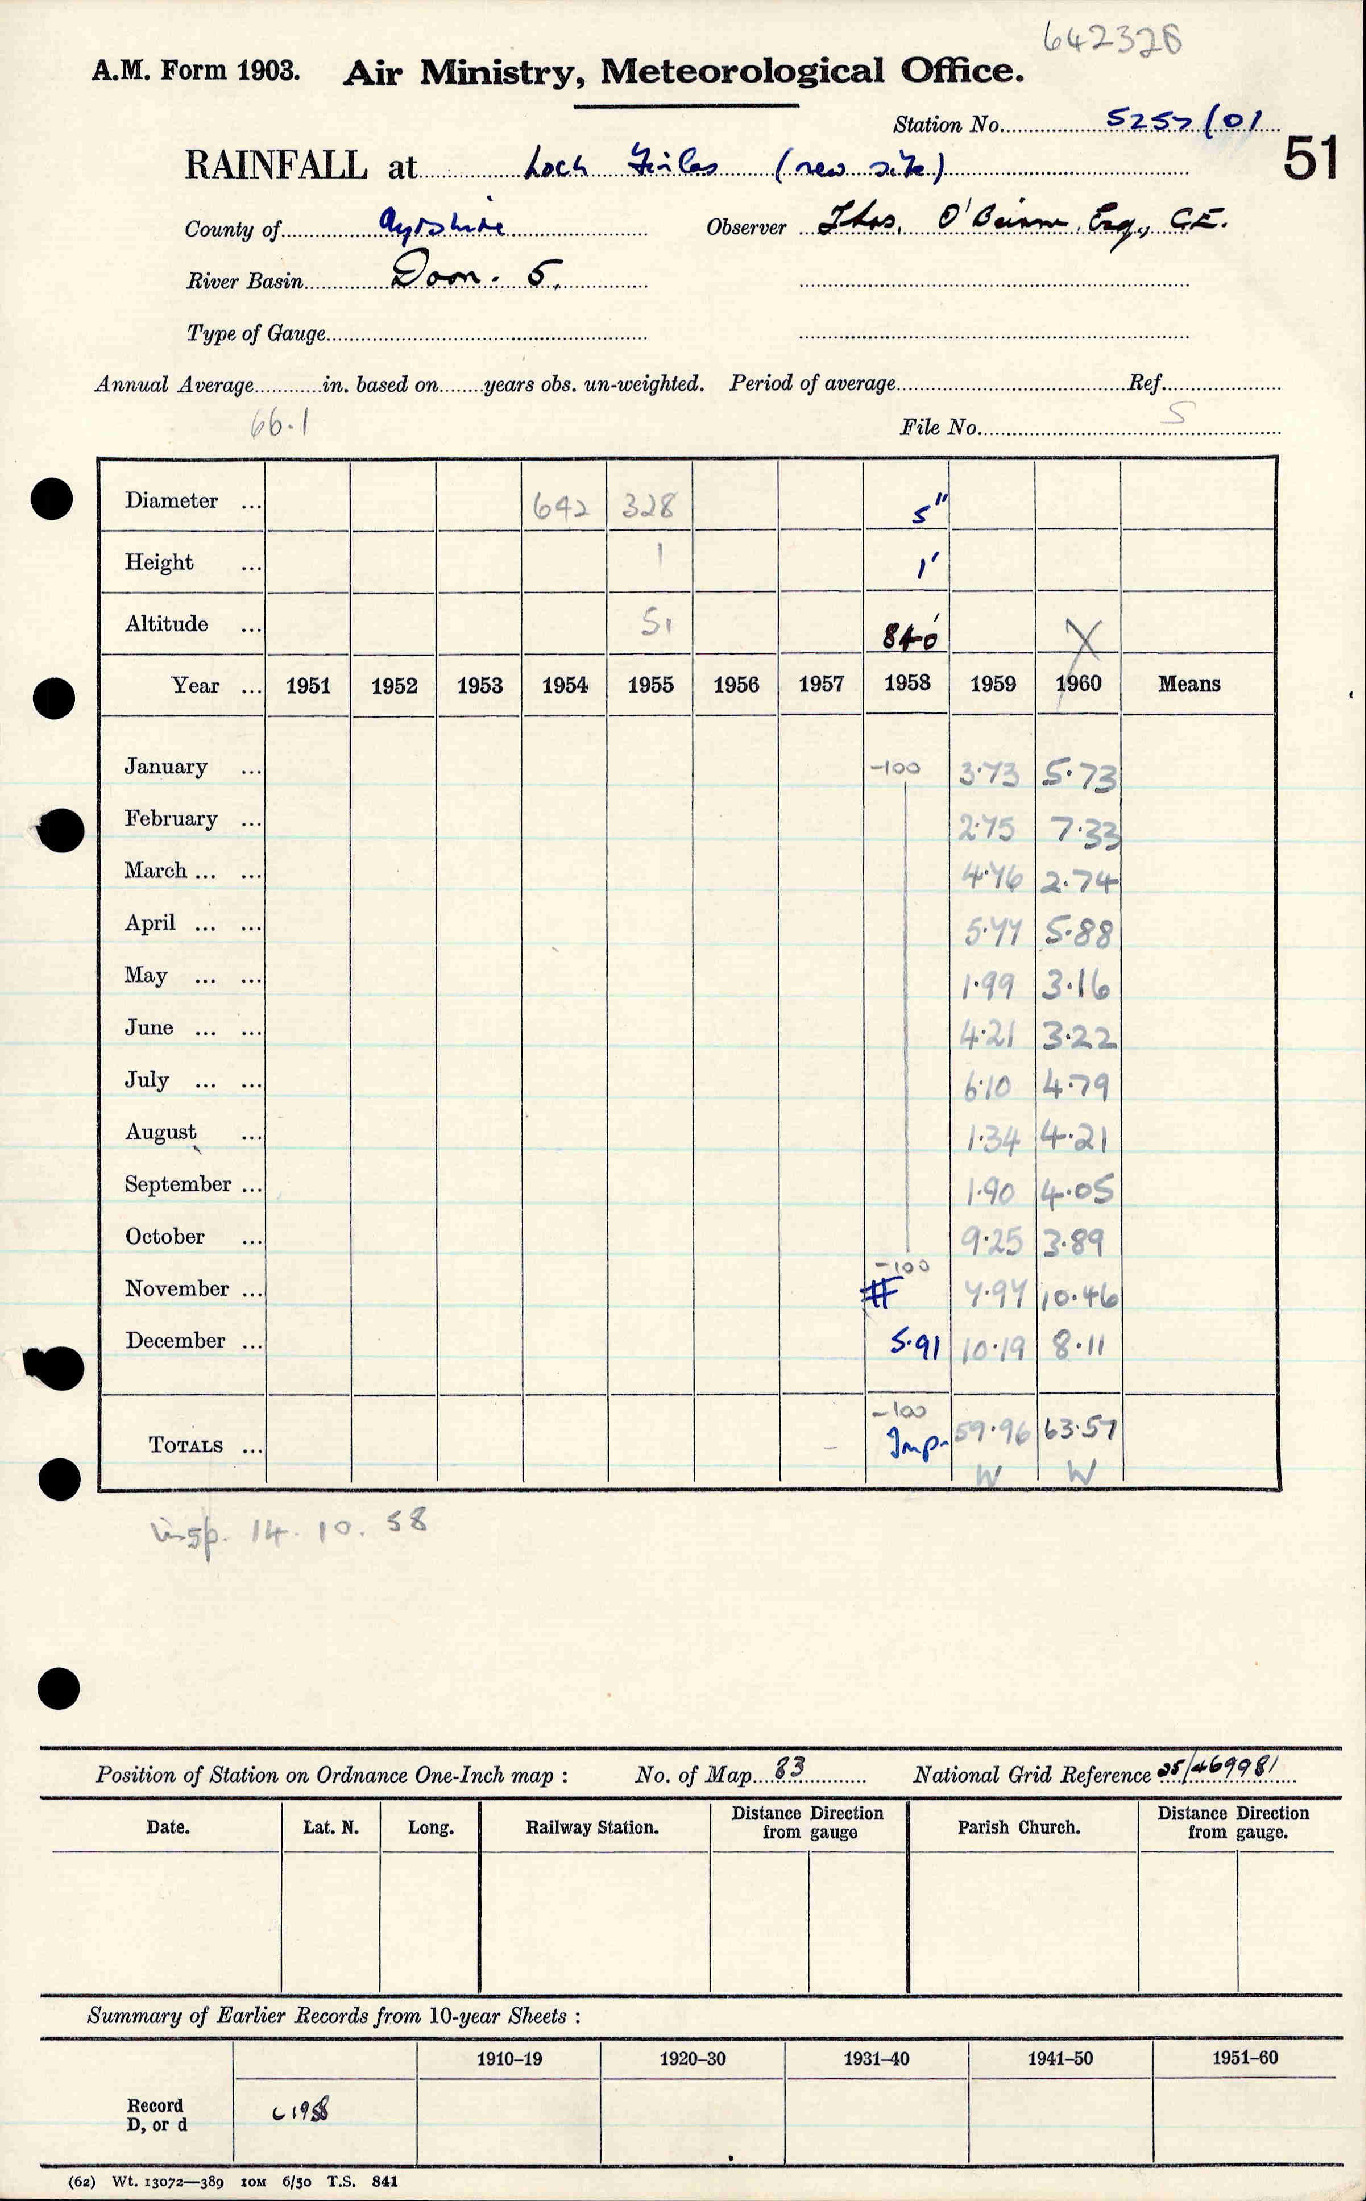 642328
A.M. Form 1903. Air Ministry, Meteorological Office.
Station No. 5257/01
51
RAINFALL at Loch Finlas (new site)
County of Ayrshire Observer Thos. O'Beirne, Esq., C.E.
River Basin Doon. 5.
Type of Gauge
Annual Average in. based on years obs. un-weighted. Period of average Ref.
66.1 File No. 5
Diameter ... 642 328 5"
Height ... 1 1'
Altitude ... 51 840' X
Year ... 1951 1952 1953 1954 1955 1956 1957 1958 1959 1960 Means
January ... -100 3.73 5.73
February ... 2.75 7.33
March ... ... 4.76 2.74
April ... ... 5.77 5.88
May ... ... 1.99 3.16
June ... ... 4.21 3.22
July ... ... 6.10 4.79
August ... 1.34 4.21
September ... 1.90 4.05
October ... 9.25 3.89
-100
November ... # 7.97 10.46
December ... 5.91 10.19 8.11
-100
TOTALS ... Imp. 59.96 63.57
W W
insp. 14.10.58
Position of Station on Ordnance One-Inch map : No. of Map 83 National Grid Reference 25/469981
Date. Lat. N. Long. Railway Station. Distance Direction from gauge Parish Church. Distance Direction from gauge.
Summary of Earlier Records from 10-year Sheets :
1910–19 1920–30 1931–40 1941–50 1951–60
Record
D, or d
c1958
(62) Wt. 13072—389 10M 6/50 T.S. 841